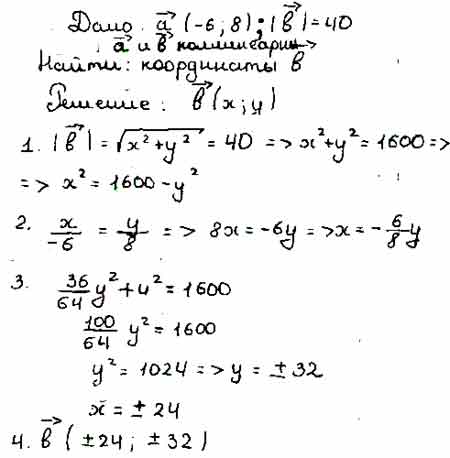 Дано: a⃗ (-6; 8); |b⃗| = 40
a⃗ и b⃗ коллинеарн
Найти: координаты b⃗
Решение: b⃗ (x; y)
1. |b⃗| = √x² + y² = 40 => x² + y² = 1600 =>
=> x² = 1600 - y²
2. x/-6 = y/8 => 8x = -6y => x = - 6/8 y
3. 36/64 y² + y² = 1600
100/64 y² = 1600
y² = 1024 => y = ± 32
x = ± 24
4. b⃗ (±24; ±32)